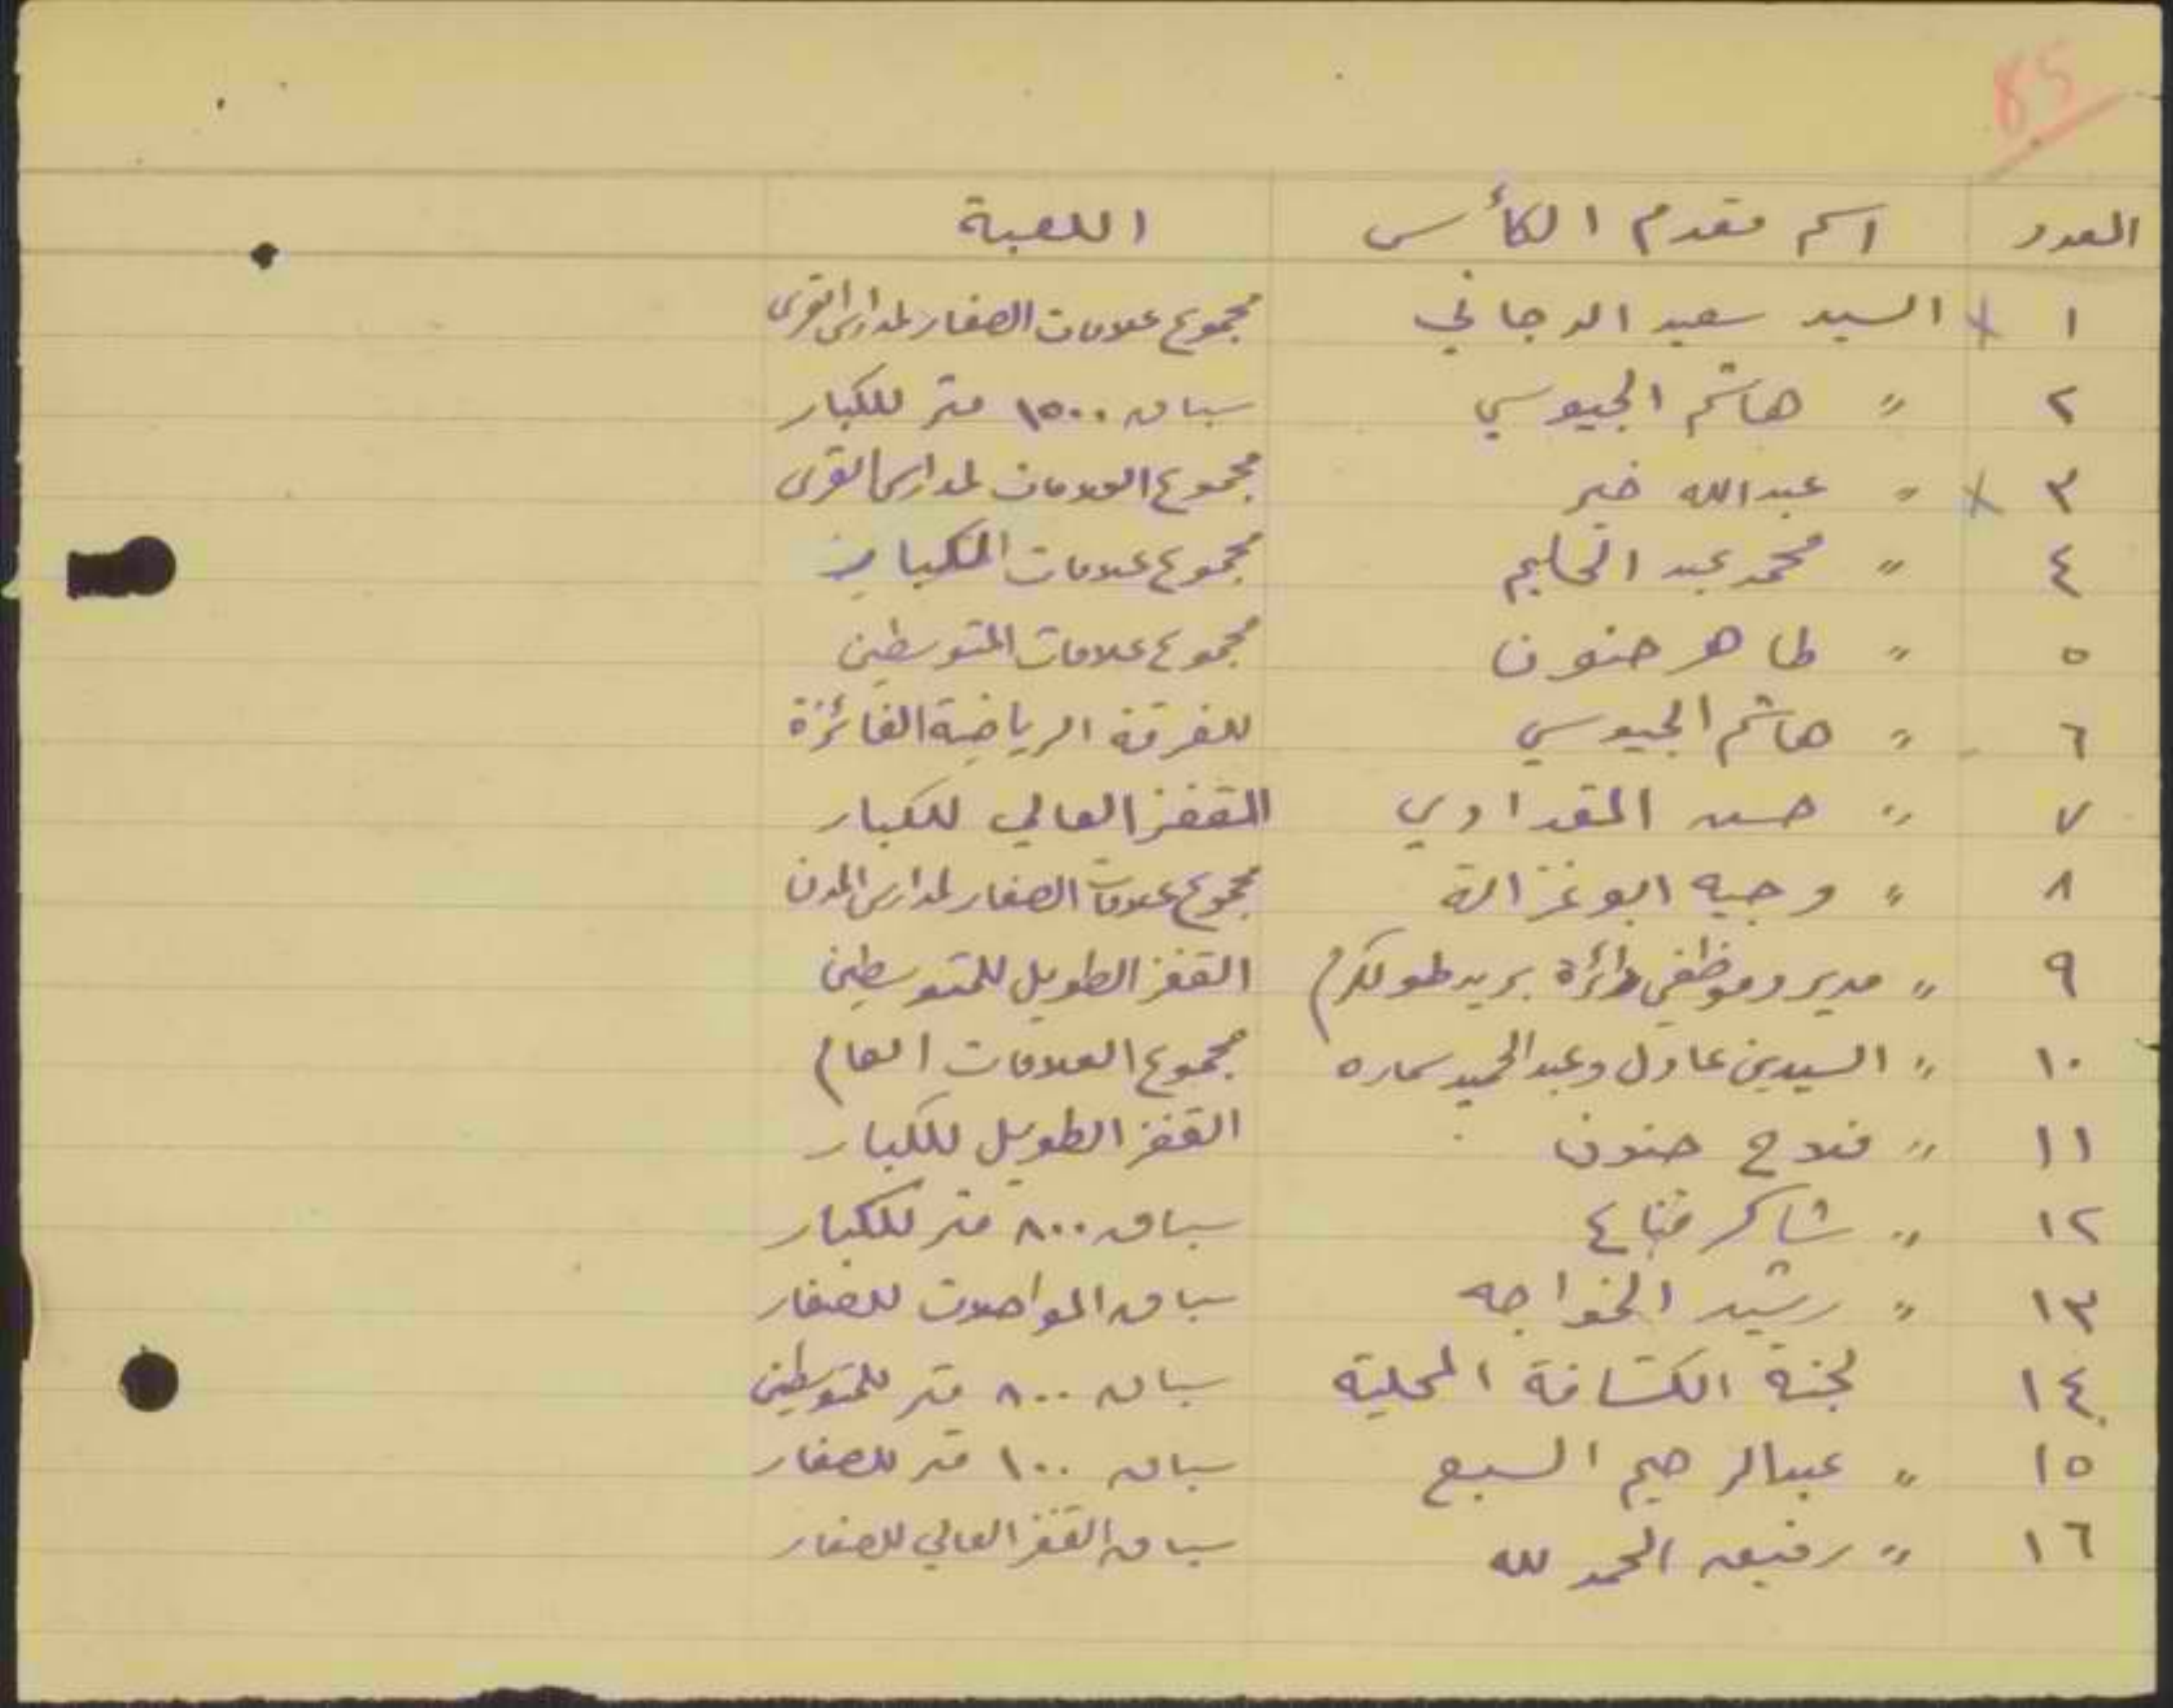 85
العدد اسم مقدم الكأس اللعبة
١ × السيد سعيد الدجاني مجموع علامات الصغار لمدارس القرى
٢ " هاشم الجيوسي سباق ١٥٠٠ متر للكبار
٣ × " عبدالله خير مجموع العلامات لمدارس القرى
٤ " محمد عبد الحليم مجموع علامات الكبار
٥ " طاهر حنون مجموع علامات المتوسطين
٦ " هاشم الجيوسي للفرقة الرياضية الفائزة
٧ " حسن المقدادي القفز العالي للكبار
٨ " وجيه ابو غزالة مجموع علامات الصغار لمدارس المدن
٩ " مدير وموظفي دائرة بريد طولكرم القفز الطويل للمتوسطين
١٠ " السيدين عادل وعبد الحميد سماره مجموع العلامات العام
١١ " فلاح حنون القفز الطويل للكبار
١٢ " شاكر سباق ٨٠٠ متر للكبار
١٣ " رشيد الخواجه سباق المواصلات للصغار
١٤ لجنة الكشافة المحلية سباق ٨٠٠ متر للمتوسطين
١٥ " عبدالرحيم السبع سباق ١٠٠ متر للصغار
١٦ " رفيق الحمد لله سباق القفز العالي للصغار